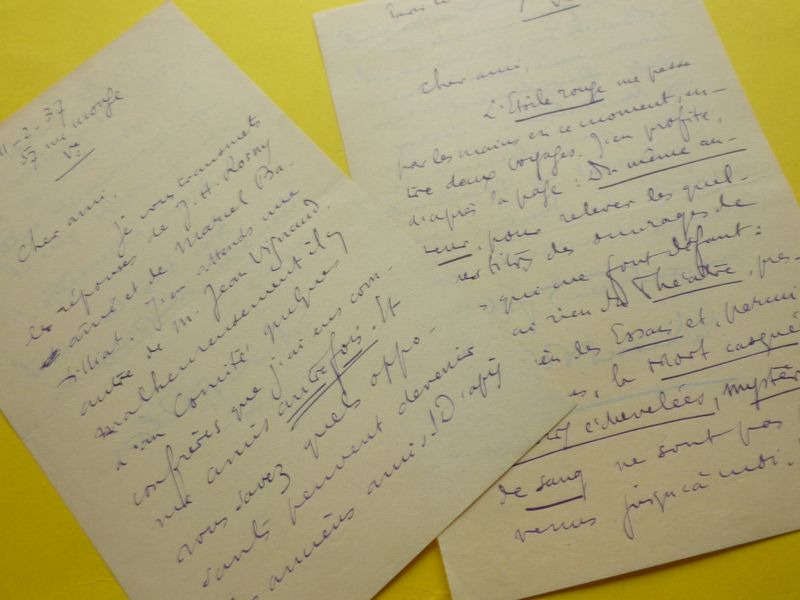 11-2-37
57. rue Monge
Ve
Cher ami,
Je vous transmets
les réponses de J. H. Rosny
aîné et de Marcel Ba-
tilliat. J'en attends une
autre de M. Jean Vignaud.
Malheureusement il y
a au Comité quelques
confrères que j'ai eus com-
me amis autrefois. Et
vous savez quels oppo-
sants peuvent devenir
anciens amis! D'après
Paris le
Ve
Cher ami,
L'Etoile rouge me passe
par les mains en ce moment, en-
tre deux voyages. J'en profite,
d'après la page: Du même au-
teur, pour relever les quel-
titres des ouvrages de
que me font défaut:
ai rien du Théâtre, pas
des Essais et, parmi
la Mort casquée
échevelées, Mystère
de sang ne sont pas
venus jusqu'à moi.